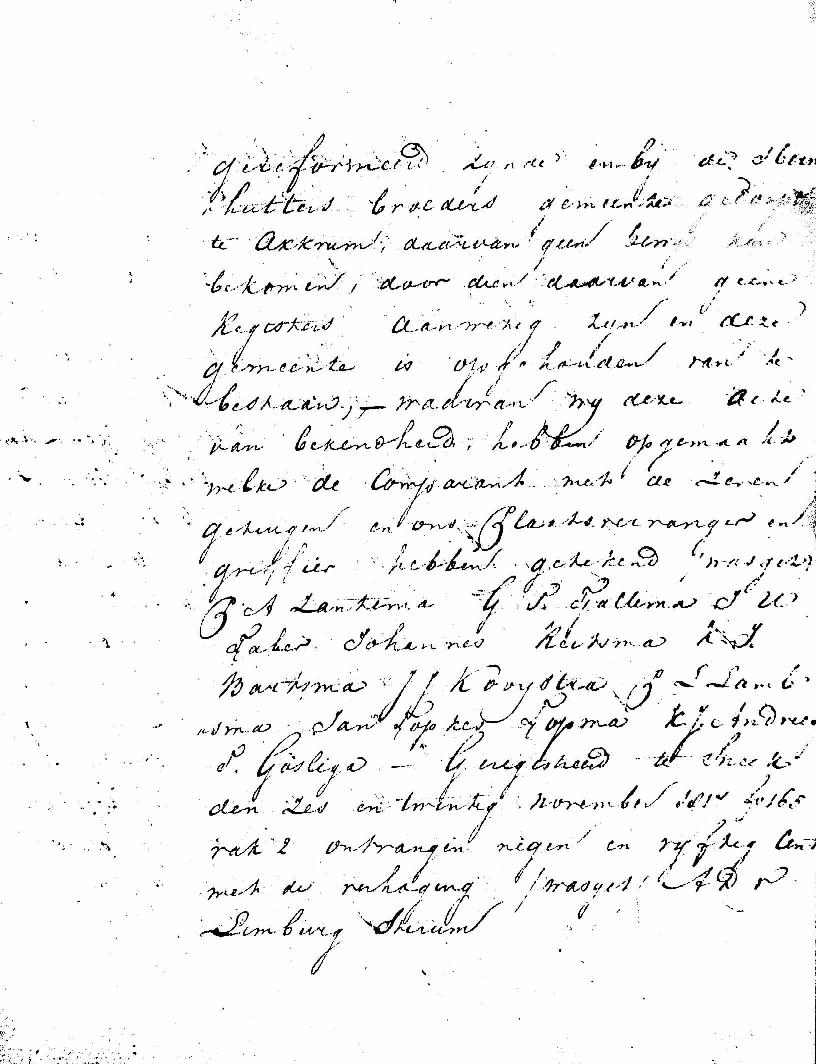 gereformeerd zynde en by de Hern
hutters broeders gemeente gedoopt
te Akkrum, daarvan geen bewys kan
bekomen, door dien daarvan geene
Registers aanwezig zyn en deze
gemeente is opgehouden van te
bestaan, – waarvan wy deze Acte
van bekendheid, hebben opgemaakt
welke de Comparant met de zeven
getuigen en ons Plaatsvervanger en
griffier hebben getekend (was get)
P A Lantema G T Tallema J U
Taber Johannes Reitsma K J
Bartsma J J Kooystra P L Lamb
sma Jan Topkes Topma K J Andree
T. Gosliga – Geregistreerd te Sneek
den zes en twintig november 1817 fo 165
vak 2 ontvangen negen en vyftig Cent
met de verhoging (was get) A D v
Limburg Stirum